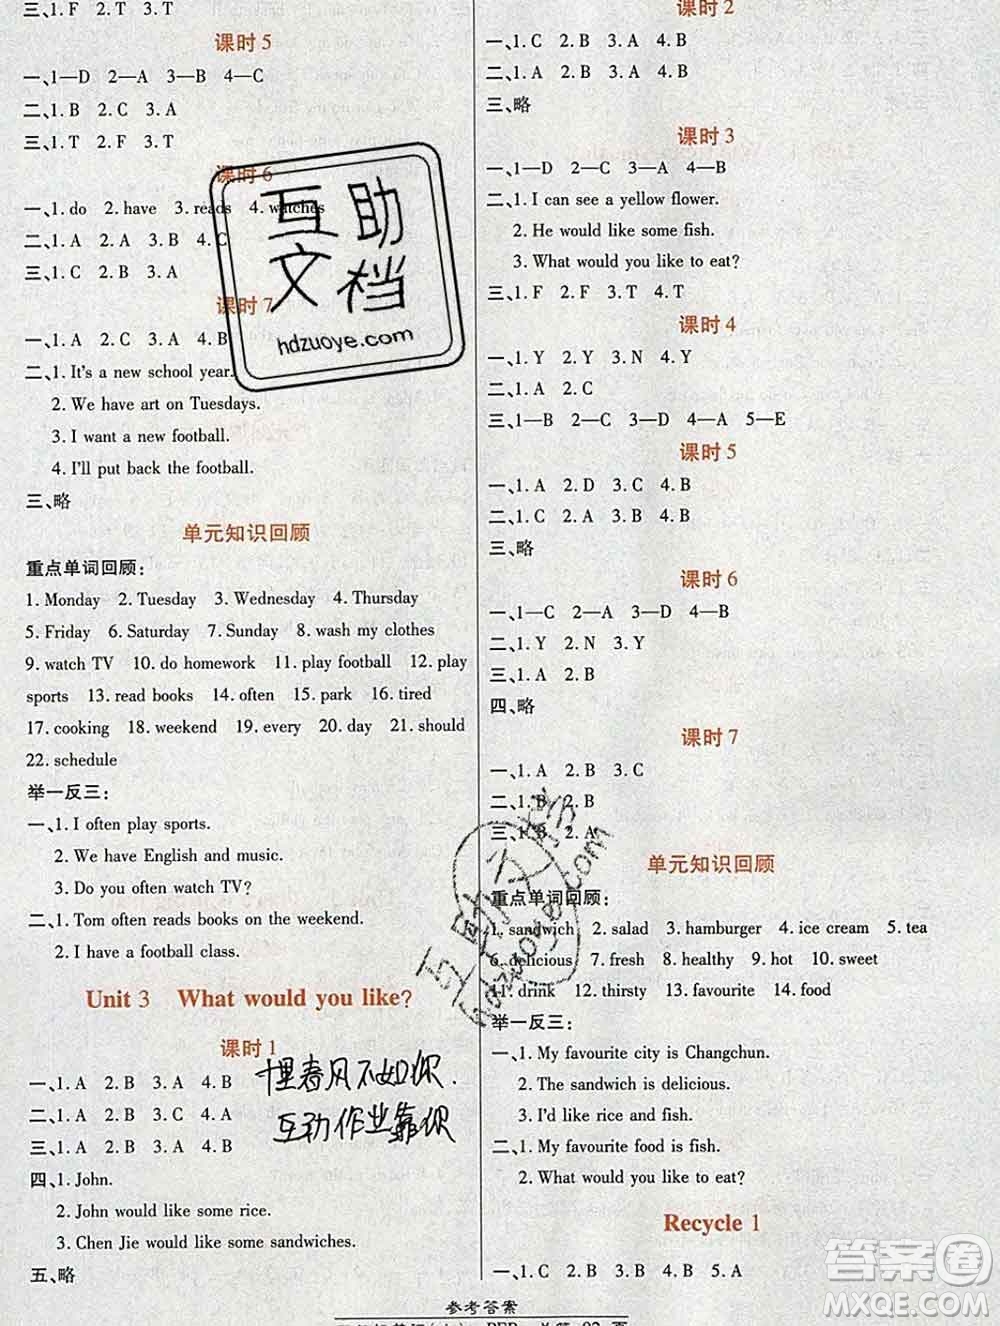 三、1. F  2. T  3. T
课时 5
一、1—D  2—A  3—B  4—C
二、1. B  2. C  3. A
三、1. T  2. F  3. T
课时 6
一、1. do  2. have  3. reads  4. watches
二、1. A  2. A  3. B  4. C
三、1. C  2. B  3. A
课时 7
一、1. A  2. C  3. A  4. B
二、1. It's a new school year.
2. We have art on Tuesdays.
3. I want a new football.
4. I'll put back the football.
三、略
单元知识回顾
重点单词回顾：
1. Monday  2. Tuesday  3. Wednesday  4. Thursday
5. Friday  6. Saturday  7. Sunday  8. wash my clothes
9. watch TV  10. do homework  11. play football  12. play
sports  13. read books  14. often  15. park  16. tired
17. cooking  18. weekend  19. every  20. day  21. should
22. schedule
举一反三：
一、1. I often play sports.
2. We have English and music.
3. Do you often watch TV?
二、1. Tom often reads books on the weekend.
2. I have a football class.
Unit 3  What would you like?
课时 1
一、1. A  2. B  3. A  4. B
二、1. A  2. B  3. C  4. A
三、1. A  2. B  3. A  4. B
四、1. John.
2. John would like some rice.
3. Chen Jie would like some sandwiches.
五、略
课时 2
一、1. C  2. B  3. A  4. B
二、1. A  2. B  3. A  4. B
三、略
课时 3
一、1—D  2—C  3—A  4—B
二、1. I can see a yellow flower.
2. He would like some fish.
3. What would you like to eat?
三、1. F  2. F  3. T  4. T
课时 4
一、1. Y  2. Y  3. N  4. Y
二、1. A  2. C
三、1—B  2—C  3—D  4—A  5—E
课时 5
一、1. A  2. D  3. C  4. B
二、1. C  2. A  3. B  4. B
三、略
课时 6
一、1—C  2—A  3—D  4—B
二、1. Y  2. N  3. Y
三、1. A  2. B
四、略
课时 7
一、1. A  2. B  3. C
二、1. B  2. B
三、1. B  2. A
单元知识回顾
重点单词回顾：
1. sandwich  2. salad  3. hamburger  4. ice cream  5. tea
6. delicious  7. fresh  8. healthy  9. hot  10. sweet
11. drink  12. thirsty  13. favourite  14. food
举一反三：
一、1. My favourite city is Changchun.
2. The sandwich is delicious.
3. I'd like rice and fish.
二、1. My favourite food is fish.
2. What would you like to eat?
Recycle 1
一、1. C  2. B  3. B  4. B  5. A
参考答案
互助文档
hdzuoye.com
十里春风不如你.
互动作业靠你
hdzuoye.com
答案圈
MXQE.COM